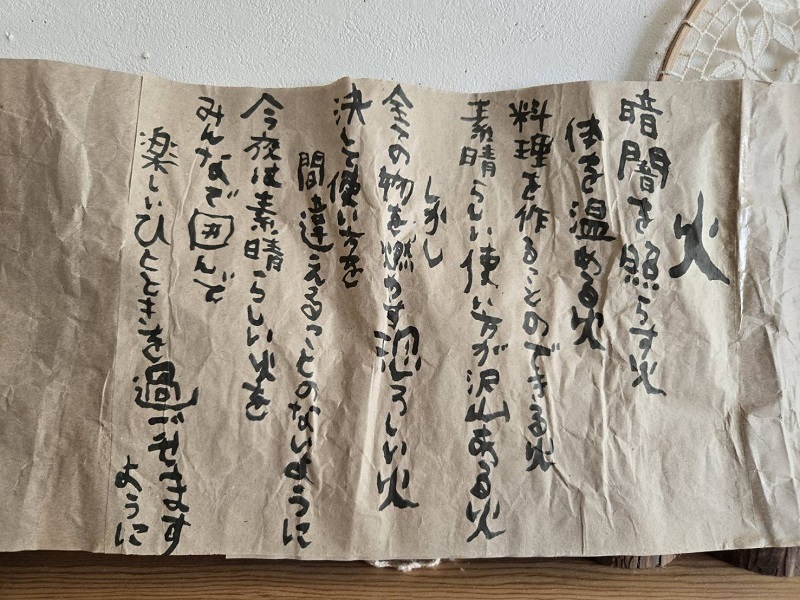 火
暗闇を照らす火
体を温める火
料理を作ることのできる火
素晴らしい使い方が沢山ある火
しかし
全ての物を燃やす恐ろしい火
決して使い方を
間違えることのないように
今夜は素晴らしい火を
みんなで囲んで
楽しいひとときを過ごせます
ように